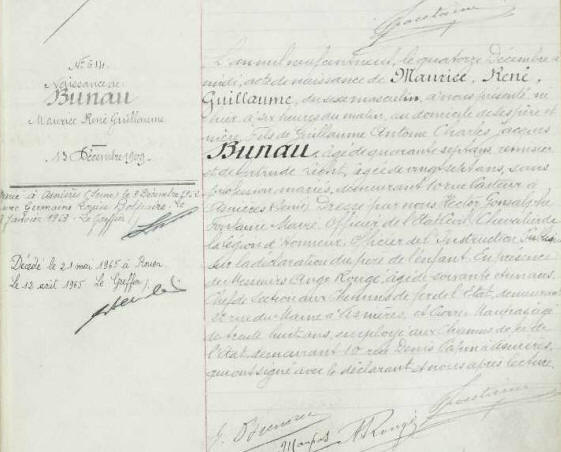 N° 614
Naissance de
Bunau
Maurice René Guillaume
13 Décembre 1909
à Asnières (Seine) le 9 Décembre
avec Germaine
Janvier 1963 Le Greffier
Décédé le 21 mai 1965 à Rouen
Le 12 août 1965 Le Greffier
L'an mil neuf cent neuf, le quatorze Décembre à
midi, acte de naissance de Maurice, René,
Guillaume, du sexe masculin, à nous présenté, né
hier à six heures du matin, au domicile de ses père et
mère, Fils de Guillaume Antoine Charles Jacques
Bunau, âgé de quarante sept ans,
et de Gertrude, âgée de vingt sept ans, sans
profession, mariés, demeurant 10 rue Pasteur à
Asnières (Seine). Dressé par nous Hector Gonsalphe
Fontaine, Maire, Officier de l'Etat Civil, Chevalier de
la Légion d'Honneur, Officier de l'Instruction
sur la déclaration du père de l'enfant. En présence
de Messieurs Ange Rougé, âgé de soixante et un ans,
Chef de Section aux Chemins de fer de l'Etat, demeurant
rue du Maine à Asnières, et Maufras, âgé
de trente huit ans, employé aux Chemins de fer de
l'Etat, demeurant 10 rue Denis Papin à Asnières,
qui ont signé avec le déclarant et nous après lecture.
Fontaine
G. Bunau
Maufras A. Rougé